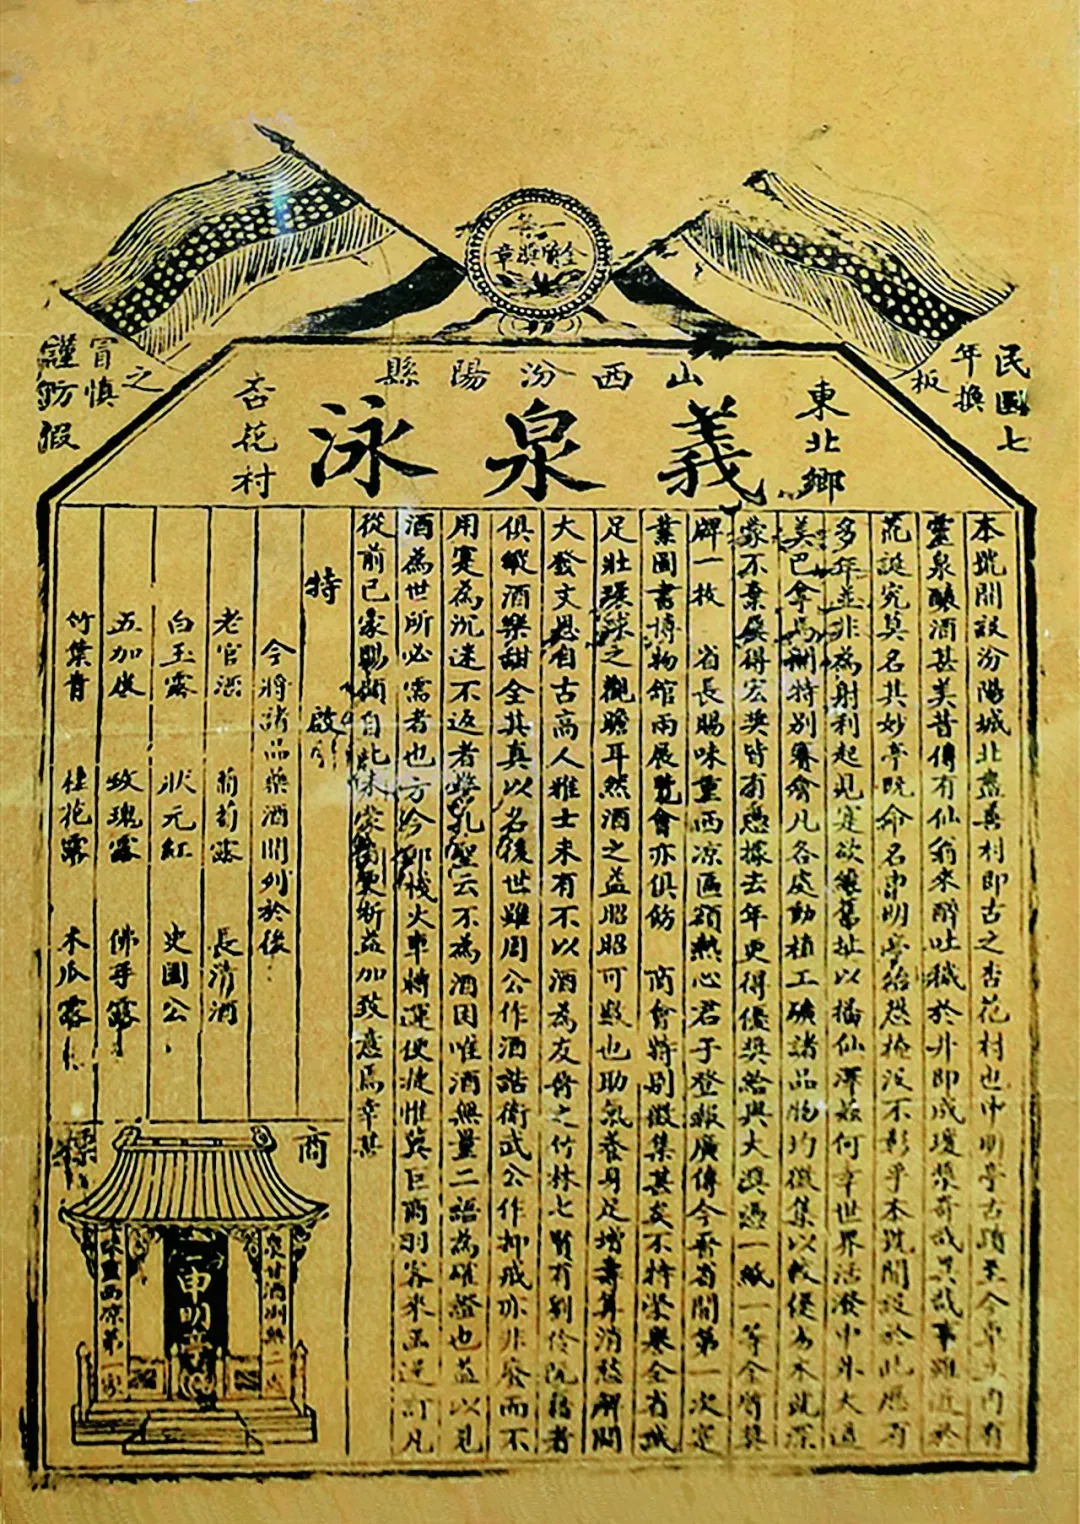 一等
金牌獎章
民國七
年換
板
謹防假
冒慎
之
山西汾陽縣
東北鄉
義泉泳
杏花村
本號開設汾陽城北盡善村即古之杏花村也申明亭古蹟至今卓立內有
靈泉釀酒甚美昔傳有仙翁來醉吐穢於井即成瓊漿奇哉異哉事雖近於
荒誕究莫名其妙亭既命名申明亭殆恐掩沒不彰乎本號開設於此歷有
多年並非為射利起見寔欲繼舊址以播仙澤茲何幸世界活潑中外大通
美巴拿馬開特別賽會凡各處動植工礦諸品物均徵集以較優劣本號深
蒙不棄屢得宏獎皆有憑據去年更得優獎給與大漢憑一紙一等金牌獎
牌一枚 省長賜味重西凉匾額熱心君子登報廣傳今晉省開第一次寔
業圖書博物館兩展覽會亦俱飭 商會特別徵集甚矣不特榮與全省誠
足壯環球之觀瞻耳然酒之益昭昭可數也助氣養身足增壽算消愁解悶
大發文思自古高人雅士未有不以酒為友脩之竹林七賢有劉伶阮籍者
俱縱酒樂甜全其真以名後世雖周公作酒誥衛武公作抑戒亦非發而不
用寔為沉迷不返者孔聖云不為酒困唯酒無量二語為確證也益以見
酒為世所必需者也方今郵棧火車轉運便捷惟冀巨商羽客來函逕訂凡
從前已蒙賜顧自此未蒙更祈益加致意焉幸甚
特啟
今將諸品藥酒開列於後
老官酒 葡萄露 長清酒
白玉露 狀元紅 史國公
五加皮 玫瑰露 佛手露
竹葉青 桂花露 木瓜露
商標
泉甘酒洌無二處
申明亭
味重西凉第一家